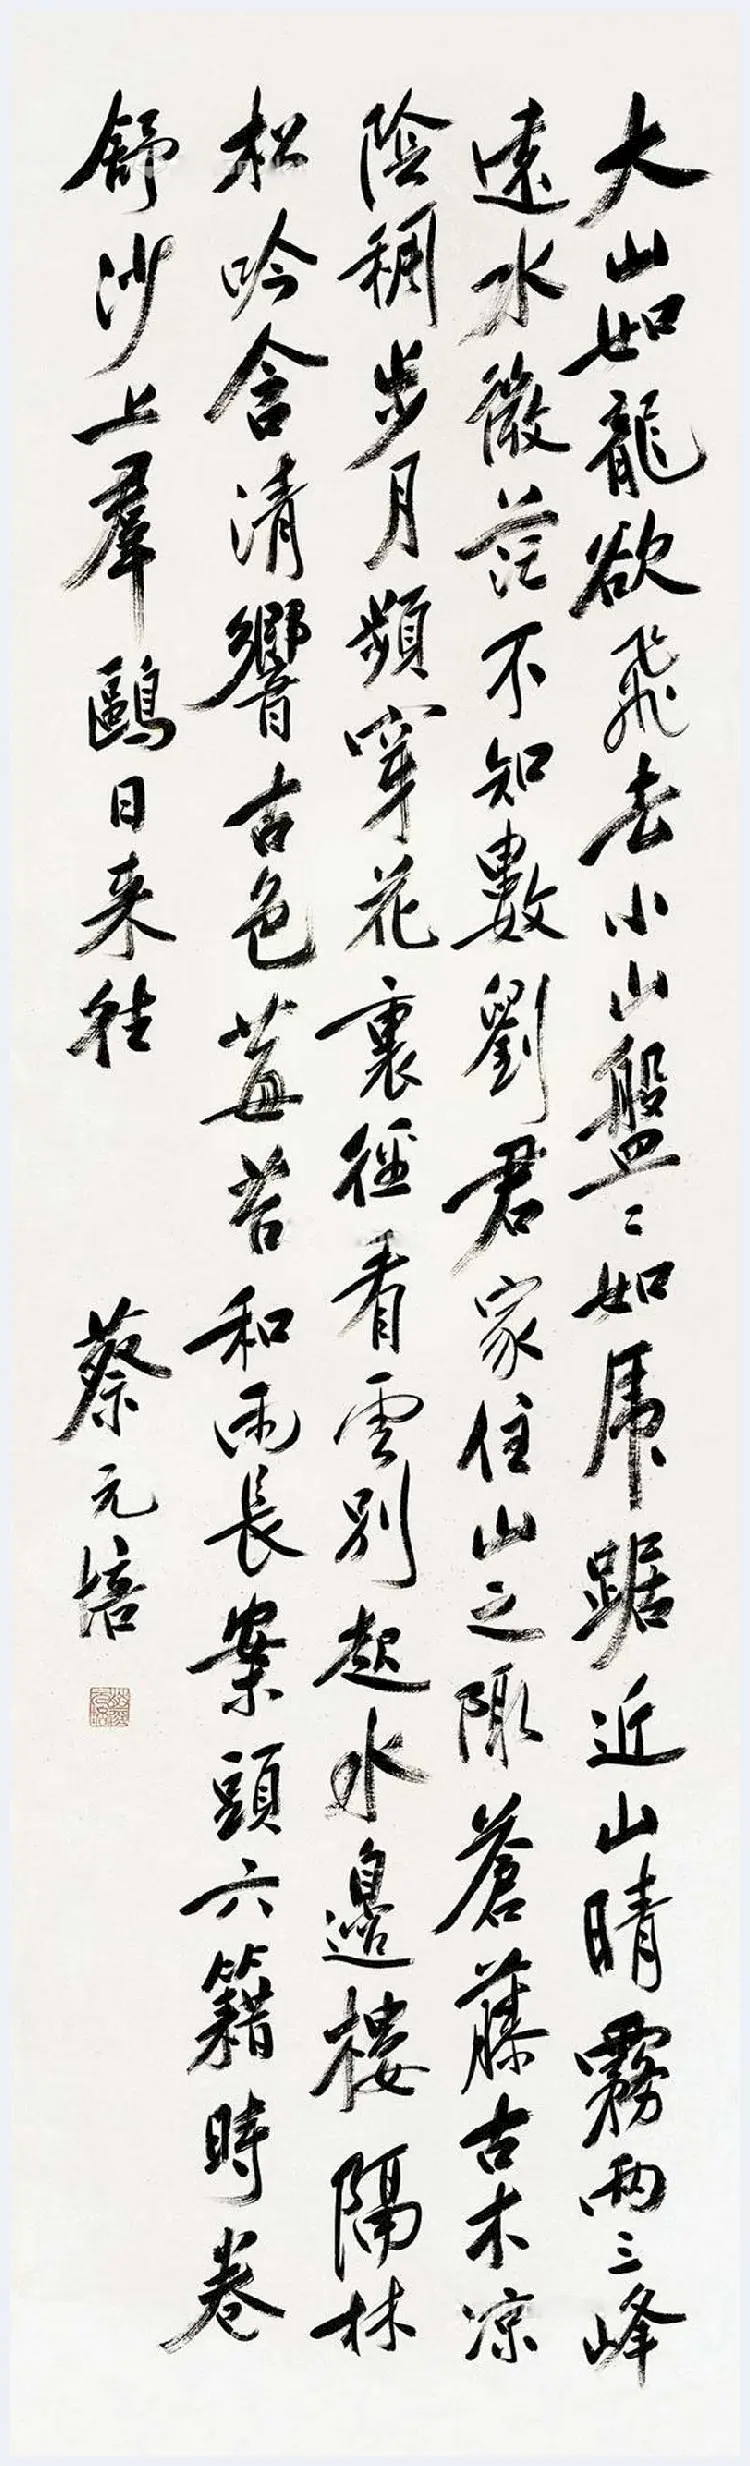 大山如龍欲飛去小山盤〻如虎踞近山晴霧兩三峰
遠水微茫不知數劉君家住山之陬蒼藤古木凉
陰稠步月頻穿花裏徑看雲別起水邊樓隔林
松吟含清響古色莓苔和雨長案頭六籍時卷
舒沙上羣鷗日来往
蔡元培